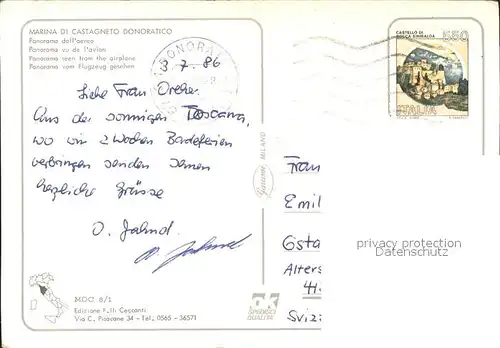 MARINA DI CASTAGNETO DONORATICO
Panorama dall'aereo
Panorama vu de l'avion
Panorama seen from the airplane
Panorama vom Flugzeug gesehen
DONORA
3-7-86
CASTELLO DI
ROCCA SINIBALDA
550
ITALIA
Liebe Frau
Aus der sonnigen Toscana,
wo wir 2 Wochen Badeferien
verbringen senden Ihnen
herzliche Grüsse
O. Jahnd.
MILANO
Frau
Emil
Gsta
Alters
Sviz
privacy protection
Datenschutz
MDC 8/1
Edizione F.lli Ceccanti
Via C. Pisacane 34 - Tel. 0565 - 36571
OK
SPECIBCI
QUALITA'